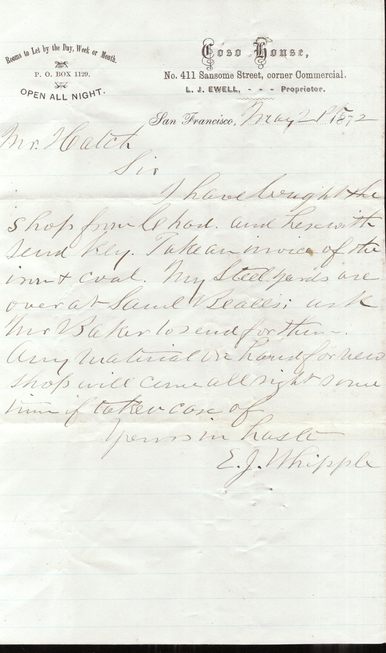 Rooms to Let by the Day, Week or Month.
P. O. BOX 1129.
OPEN ALL NIGHT.
Coso House,
No. 411 Sansome Street, corner Commercial.
L. J. EWELL, - - - Proprietor.
San Francisco, May 21st 1872
Mr. Hatch
Sir
I have bought the
shop from and herewith
send Key. Take an invoice of the
iron & coal. My Steelyards are
over at Saml Beales; ask
Mr Baker to send for them.
Any material on hand for new
shop will come all right some
time if taken care of
Yours in haste
E. J. Whipple